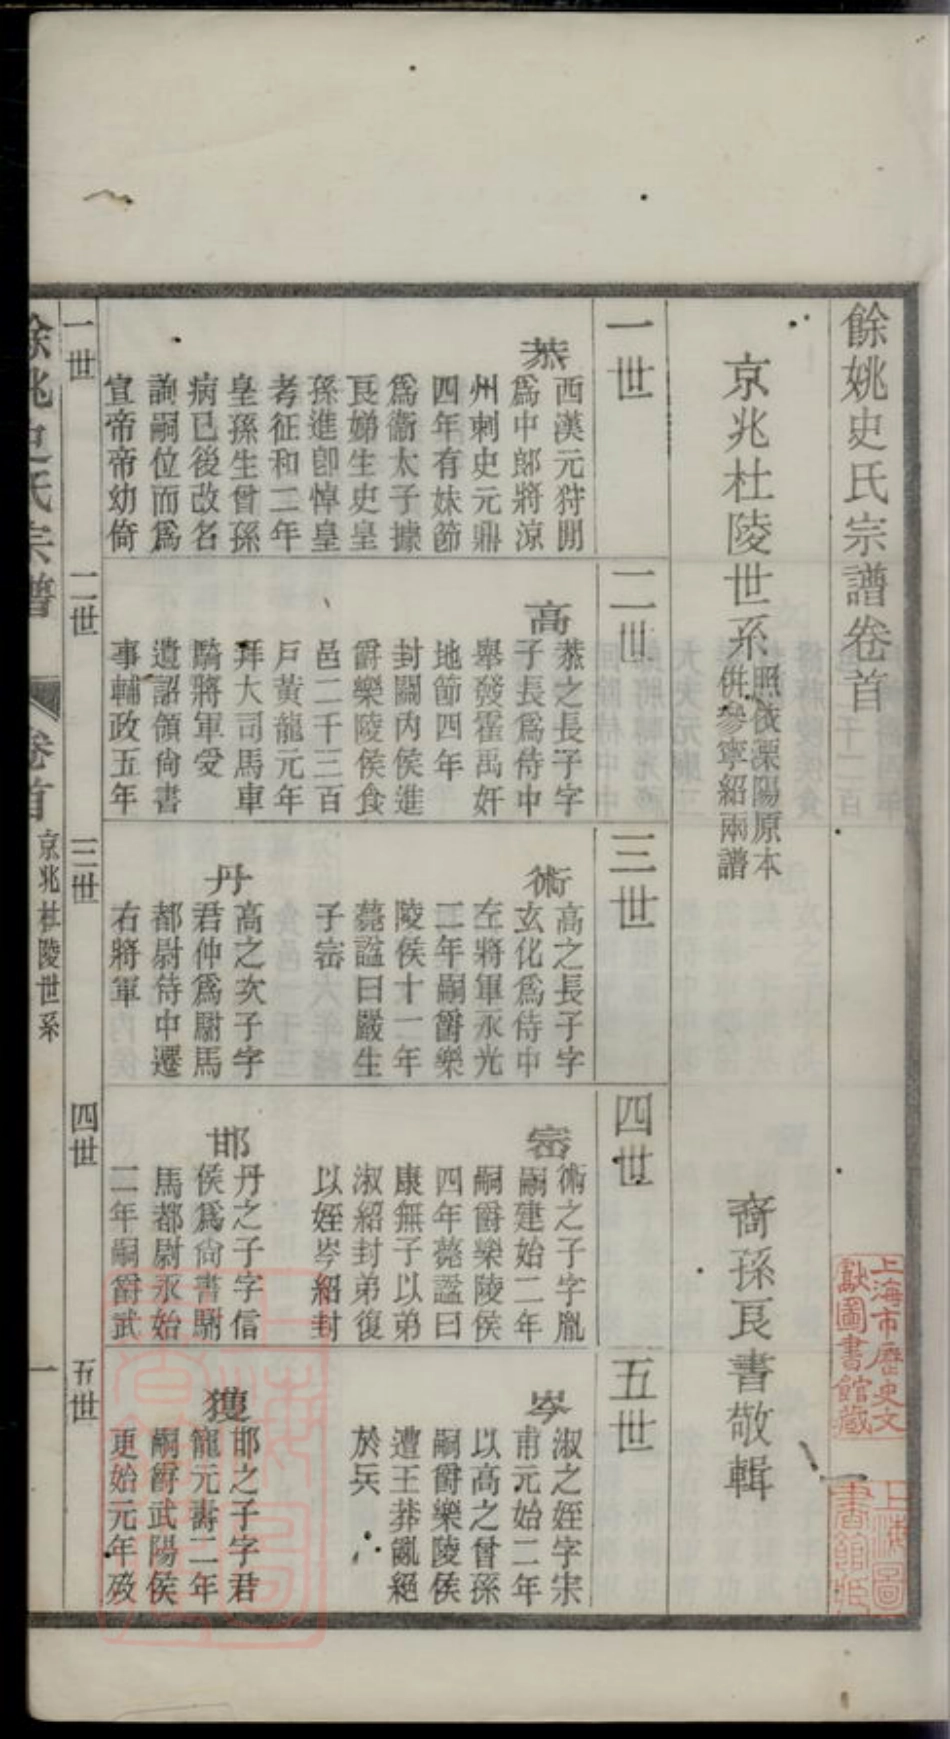 餘姚史氏宗譜卷首
京兆杜陵世系
照依溧陽原本
併參寧紹兩譜
裔孫良書敬輯
一世
恭
西漢元狩閒
爲中郎將涼
州刺史元鼎
四年有妹節
爲衞太子據
良娣生史皇
孫進卽悼皇
考征和二年
皇孫生曾孫
病已後改名
詢嗣位而爲
宣帝帝幼倚
二世
高
恭之長子字
子長爲侍中
舉發霍禹奸
地節四年
封關內侯進
爵樂陵侯食
邑二千三百
戶黃龍元年
拜大司馬車
騎將軍受
遺詔領尙書
事輔政五年
三世
術
高之長子字
玄化爲侍中
左將軍永光
二年嗣爵樂
陵侯十一年
薨謚曰嚴生
子密
丹
高之次子字
君仲爲駙馬
都尉侍中遷
右將軍
四世
密
術之子字胤
嗣建始二年
嗣爵樂陵侯
四年薨謚曰
康無子以弟
淑紹封弟復
以姪岑紹封
邯
丹之子字信
侯爲尙書駙
馬都尉永始
二年嗣爵武
五世
岑
淑之姪字宋
甫元始二年
以高之曾孫
嗣爵樂陵侯
遭王莽亂絕
於兵
獲
邯之子字君
寵元壽二年
嗣爵武陽侯
更始元年歿
一世
二世
三世
四世
五世
餘姚史氏宗譜
卷首
京兆杜陵世系
一
上海市歷史文
獻圖書館藏